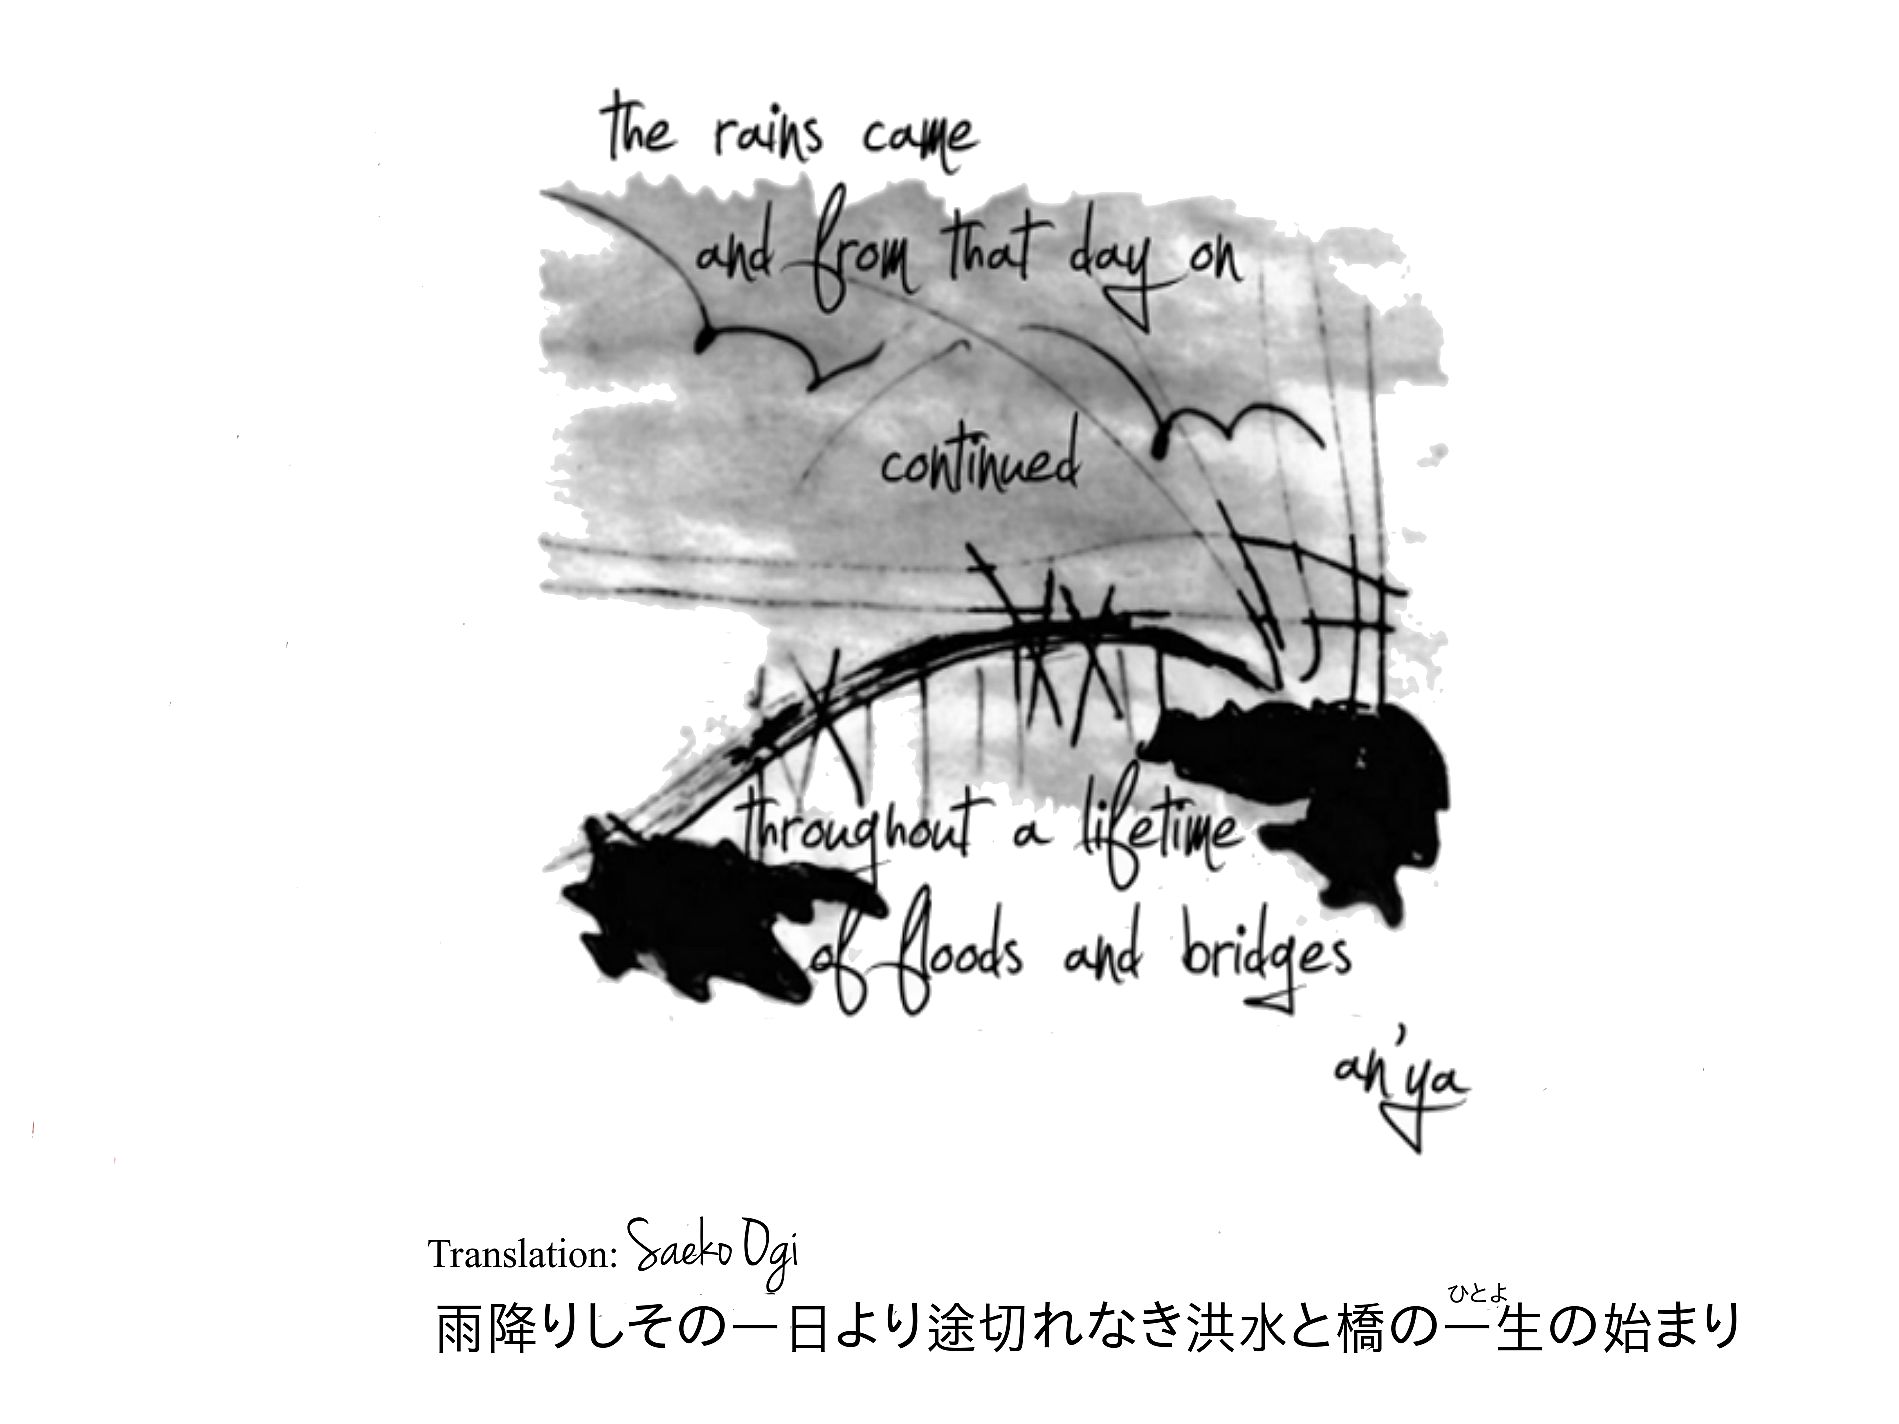 the rains came
and from that day on
continued
throughout a lifetime
of floods and bridges
an'ya
Translation: Saeko Ogi
ひとよ
雨降りしその一日より途切れなき洪水と橋の一生の始まり